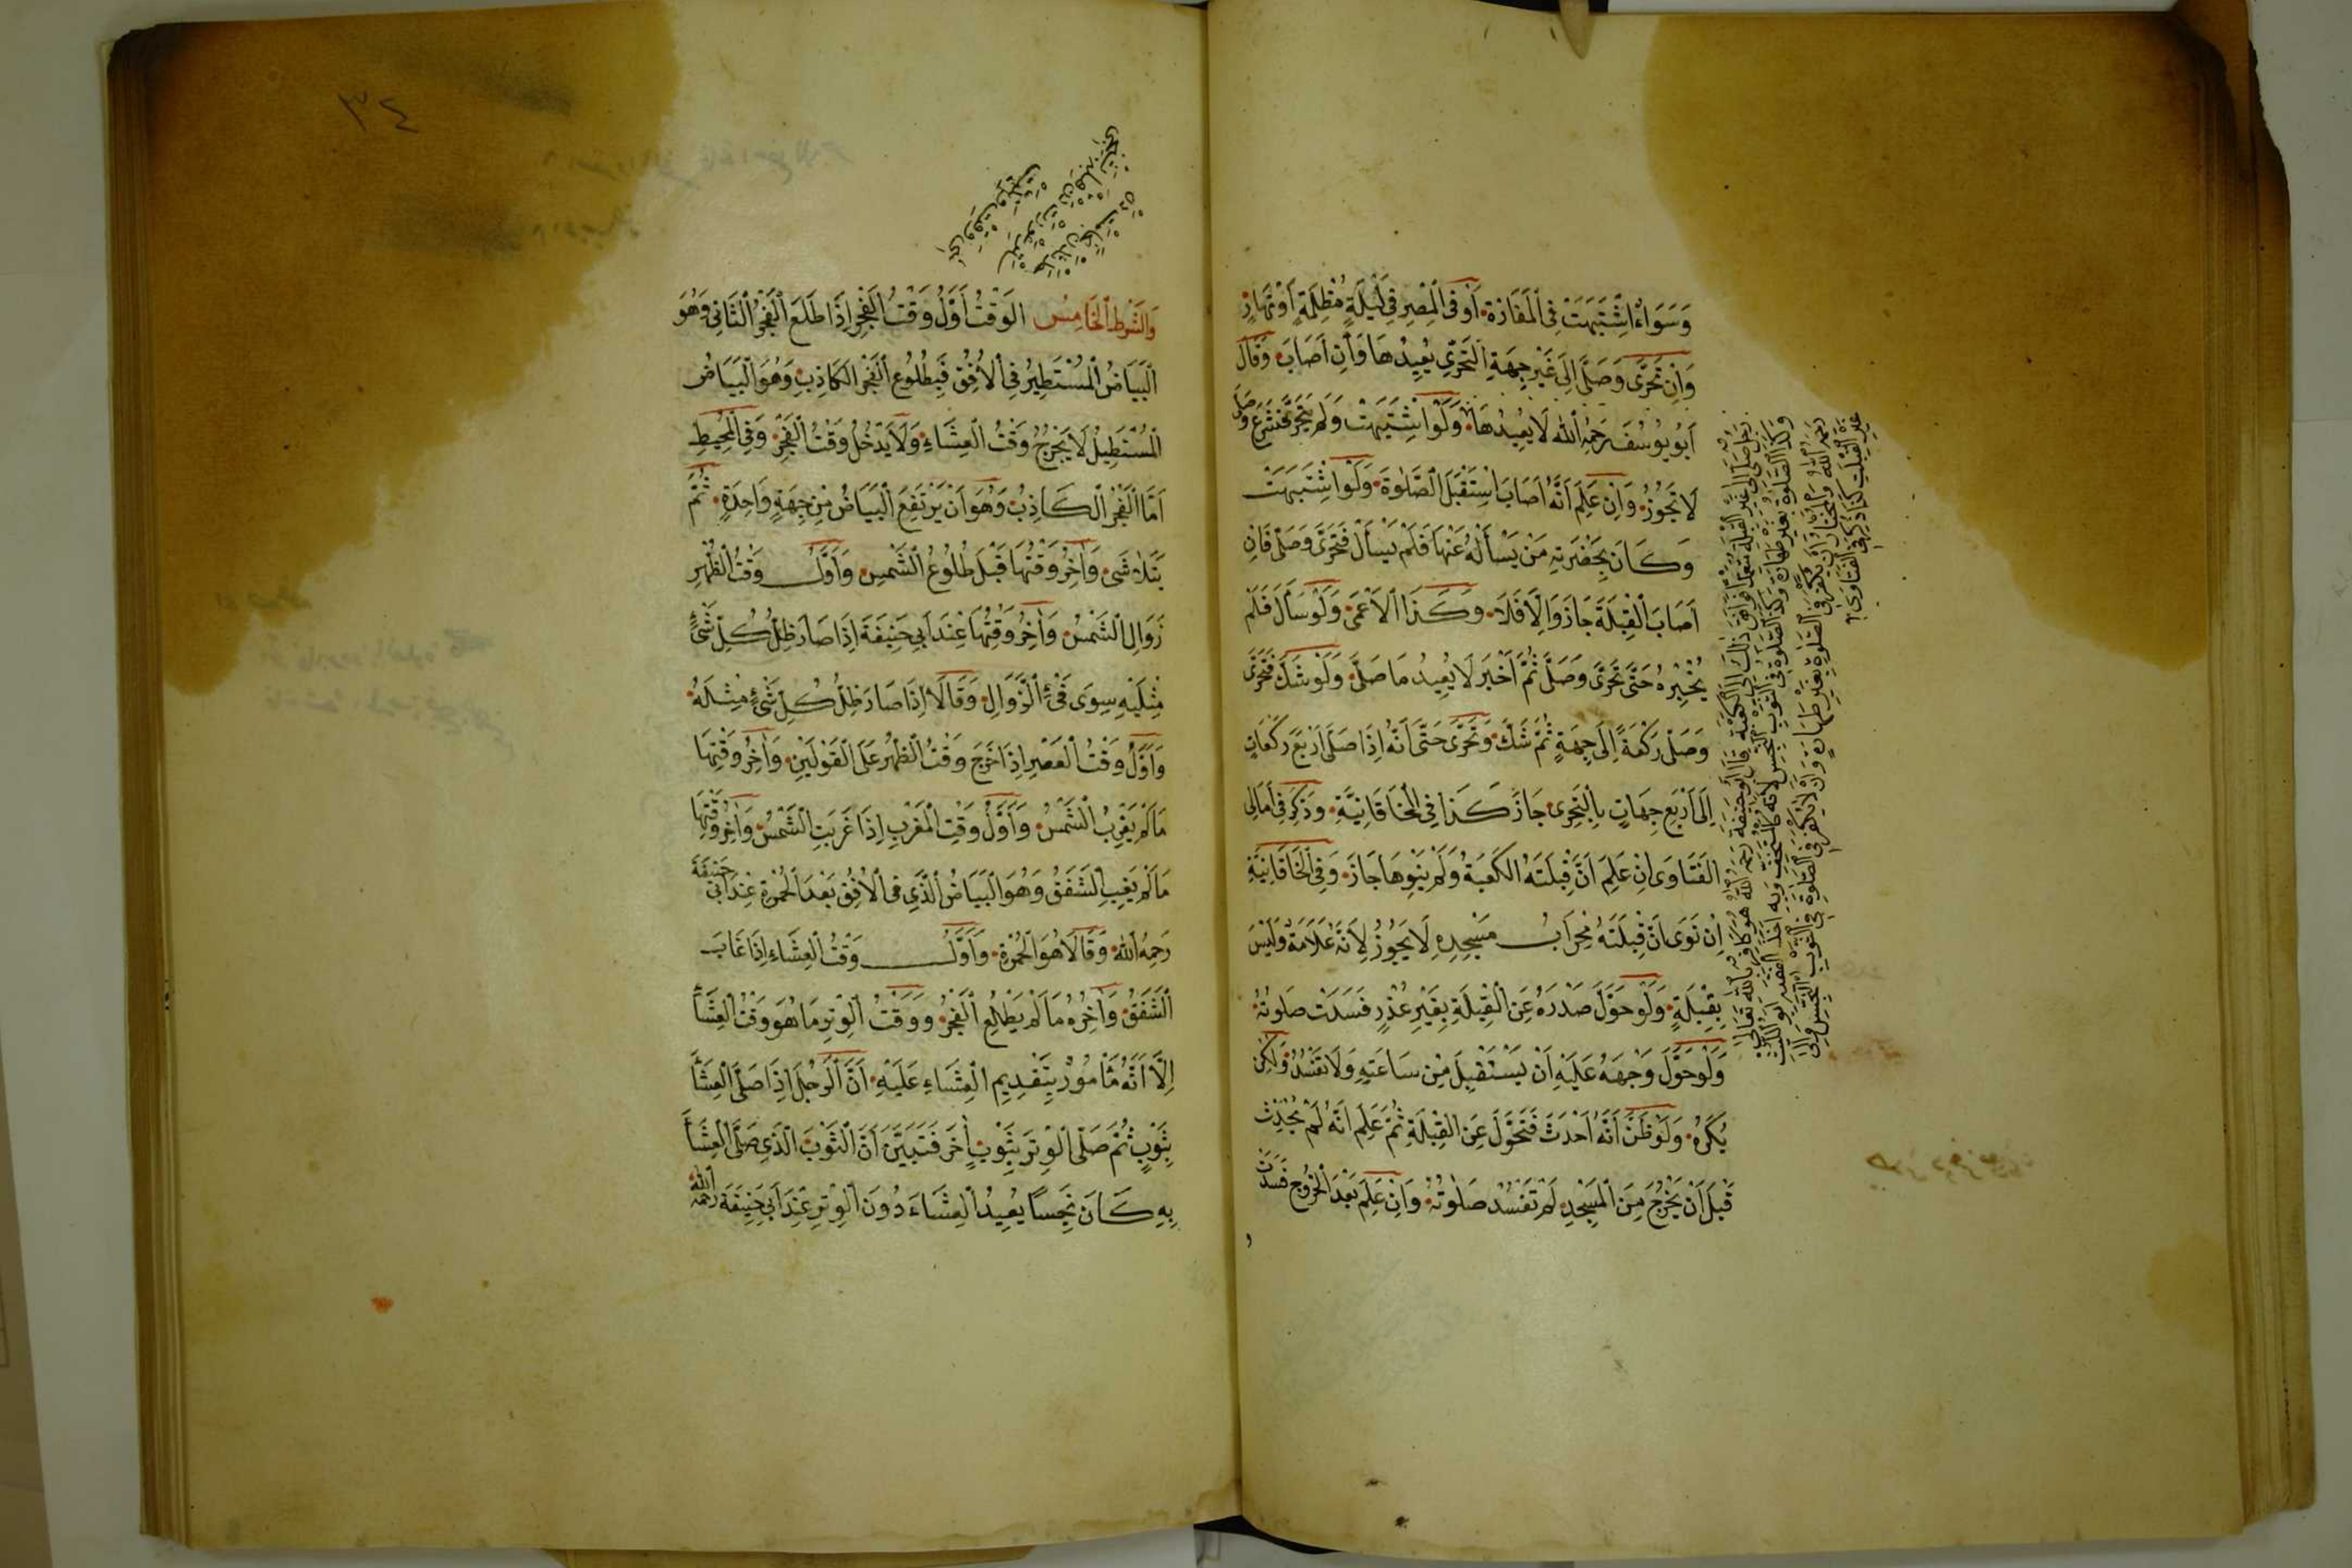 وَسَوَاءٌ اشْتَبَهَتْ فِى الْمَفَازَةِ اَوْ فِى الْمِصْرِ فِى لَيْلَةٍ مُظْلِمَةٍ اَوْ نَهَارٍ
وَاِنْ تَحَرَّى وَصَلَّى اِلَى غَيْرِ جِهَةِ التَّحَرِّى يُعِيدُهَا وَاِنْ اَصَابَ وَقَالَ
اَبُو يُوسُفَ رَحِمَهُ اللّٰهُ لَا يُعِيدُهَا وَلَوْ اشْتَبَهَتْ وَلَمْ يَتَحَرَّ فَشَرَعَ وَصَلَّى
لَا تَجُوزُ وَاِنْ عَلِمَ اَنَّهُ اَصَابَ اسْتَقْبَلَ الصَّلٰوةَ وَلَوْ اشْتَبَهَتْ
وَكَانَ بِحَضْرَتِهِ مَنْ يَسْأَلُهُ عَنْهَا فَلَمْ يَسْأَلْ فَتَحَرَّى وَصَلَّى فَاِنْ
اَصَابَ الْقِبْلَةَ جَازَ وَاِلَّا فَلَا وَكَذَا الْاَعْمَى وَلَوْ سَأَلَ فَلَمْ
يُخْبِرْهُ حَتَّى تَحَرَّى وَصَلَّى ثُمَّ اَخْبَرَ لَا يُعِيدُ مَا صَلَّى وَلَوْ شَكَّ فَتَحَرَّى
وَصَلَّى رَكْعَةً اِلَى جِهَةٍ ثُمَّ شَكَّ وَتَحَرَّى حَتَّى اَنَّهُ اِذَا صَلَّى اَرْبَعَ رَكَعَاتٍ
اِلَى اَرْبَعِ جِهَاتٍ بِالتَّحَرِّى جَازَ كَذَا فِى الْخَاقَانِيَّةِ وَذُكِرَ فِى اَمَالِى
الْفَتَاوَى اِنْ عَلِمَ اَنَّ قِبْلَتَهُ الْكَعْبَةُ وَلَمْ يَنْوِهَا جَازَ وَفِى الْخَاقَانِيَّةِ
اِنْ نَوَى اَنَّ قِبْلَتَهُ مِحْرَابُ مَسْجِدِهِ لَا يَجُوزُ لِاَنَّهُ عَلَامَةٌ وَلَيْسَ
بِقِبْلَةٍ وَلَوْ حَوَّلَ صَدْرَهُ عَنِ الْقِبْلَةِ بِغَيْرِ عُذْرٍ فَسَدَتْ صَلٰوتُهُ
وَلَوْ حَوَّلَ وَجْهَهُ عَلَيْهِ اَنْ يَسْتَقْبِلَ مِنْ سَاعَتِهِ وَلَا تَفْسُدُ وَلٰكِنْ
يُكْرَهُ وَلَوْ ظَنَّ اَنَّهُ اَحْدَثَ فَتَحَوَّلَ عَنِ الْقِبْلَةِ ثُمَّ عَلِمَ اَنَّهُ لَمْ يُحْدِثْ
قَبْلَ اَنْ يَخْرُجَ مِنَ الْمَسْجِدِ لَمْ تَفْسُدْ صَلٰوتُهُ وَاِنْ عَلِمَ بَعْدَ الْخُرُوجِ فَسَدَتْ
رَجُلٌ صَلَّى اِلَى غَيْرِ الْقِبْلَةِ مُتَعَمِّدًا فَوَافَقَ ذٰلِكَ الْكَعْبَةَ قَالَ اَبُو حَنِيفَةَ رَحِمَهُ اللّٰهُ هُوَ كَافِرٌ بِاللّٰهِ تَعَالَى
وَكَذَا الصَّلٰوةُ بِغَيْرِ طَهَارَةٍ وَكَذَا الصَّلٰوةُ فِى الثَّوْبِ النَّجِسِ لِاَنَّهُ كَالْمُسْتَخِفِّ وَبِهِ اَخَذَ الْفَقِيهُ اَبُو اللَّيْثِ
رَحِمَهُ اللّٰهُ وَالْمُخْتَارُ اَنْ يَكْفُرَ فِى الصَّلٰوةِ بِغَيْرِ طَهَارَةٍ وَاَنْ لَا يَكْفُرَ فِى الصَّلٰوةِ فِى الثَّوْبِ النَّجِسِ وَاِلَى
غَيْرِ الْقِبْلَةِ كَذَا ذُكِرَ فِى الْفَتَاوَى
٣٤
وَالشَّرْطُ الْخَامِسُ الْوَقْتُ اَوَّلُ وَقْتِ الْفَجْرِ اِذَا طَلَعَ الْفَجْرُ الثَّانِى وَهُوَ
الْبَيَاضُ الْمُسْتَطِيرُ فِى الْاُفُقِ فَبِطُلُوعِ الْفَجْرِ الْكَاذِبِ وَهُوَ الْبَيَاضُ
الْمُسْتَطِيلُ لَا يَخْرُجُ وَقْتُ الْعِشَاءِ وَلَا يَدْخُلُ وَقْتُ الْفَجْرِ وَفِى الْمُحِيطِ
اَمَّا الْفَجْرُ الْكَاذِبُ وَهُوَ اَنْ يَرْتَفِعَ الْبَيَاضُ مِنْ جِهَةٍ وَاحِدَةٍ ثُمَّ
يَتَلَاشَى وَاٰخِرُ وَقْتِهَا قَبْلَ طُلُوعِ الشَّمْسِ وَاَوَّلُ وَقْتِ الظُّهْرِ
زَوَالُ الشَّمْسِ وَاٰخِرُ وَقْتِهَا عِنْدَ اَبِى حَنِيفَةَ اِذَا صَارَ ظِلُّ كُلِّ شَىْءٍ
مِثْلَيْهِ سِوَى فَىْءِ الزَّوَالِ وَقَالَا اِذَا صَارَ ظِلُّ كُلِّ شَىْءٍ مِثْلَهُ
وَاَوَّلُ وَقْتِ الْعَصْرِ اِذَا خَرَجَ وَقْتُ الظُّهْرِ عَلَى الْقَوْلَيْنِ وَاٰخِرُ وَقْتِهَا
مَا لَمْ يَغْرُبِ الشَّمْسُ وَاَوَّلُ وَقْتِ الْمَغْرِبِ اِذَا غَرَبَتِ الشَّمْسُ وَاٰخِرُ وَقْتِهَا
مَا لَمْ يَغِبِ الشَّفَقُ وَهُوَ الْبَيَاضُ الَّذِى فِى الْاُفُقِ بَعْدَ الْحُمْرَةِ عِنْدَ اَبِى حَنِيفَةَ
رَحِمَهُ اللّٰهُ وَقَالَا هُوَ الْحُمْرَةُ وَاَوَّلُ وَقْتِ الْعِشَاءِ اِذَا غَابَ
الشَّفَقُ وَاٰخِرُهُ مَا لَمْ يَطْلُعِ الْفَجْرُ وَوَقْتُ الْوِتْرِ مَا هُوَ وَقْتُ الْعِشَاءِ
اِلَّا اَنَّهُ مَأْمُورٌ بِتَقْدِيمِ الْعِشَاءِ عَلَيْهِ اَنَّ الرَّجُلَ اِذَا صَلَّى الْعِشَاءَ
بِثَوْبٍ ثُمَّ صَلَّى الْوِتْرَ بِثَوْبٍ اٰخَرَ فَتَبَيَّنَ اَنَّ الثَّوْبَ الَّذِى صَلَّى الْعِشَاءَ
بِهِ كَانَ نَجِسًا يُعِيدُ الْعِشَاءَ دُونَ الْوِتْرِ عِنْدَ اَبِى حَنِيفَةَ رَحِمَهُ اللّٰهُ